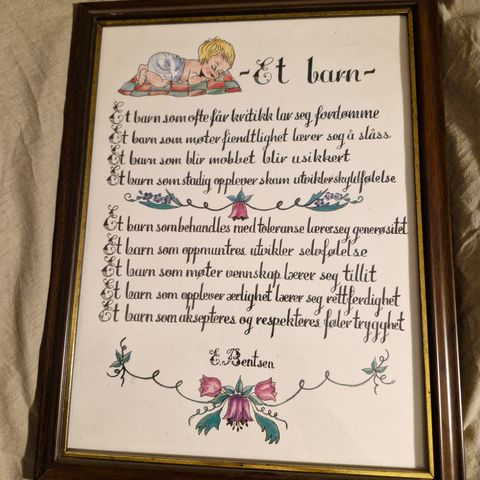 - Et barn -
Et barn som ofte får kritikk lar seg fordømme
Et barn som møter fiendtlighet lærer seg å slåss
Et barn som blir mobbet blir usikkert
Et barn som stadig opplever skam utvikler skyldfølelse
Et barn som behandles med toleranse lærer seg generøsitet
Et barn som oppmuntres utvikler selvfølelse
Et barn som møter vennskap lærer seg tillit
Et barn som opplever ærlighet lærer seg rettferdighet
Et barn som aksepteres og respekteres føler trygghet
E Bentsen